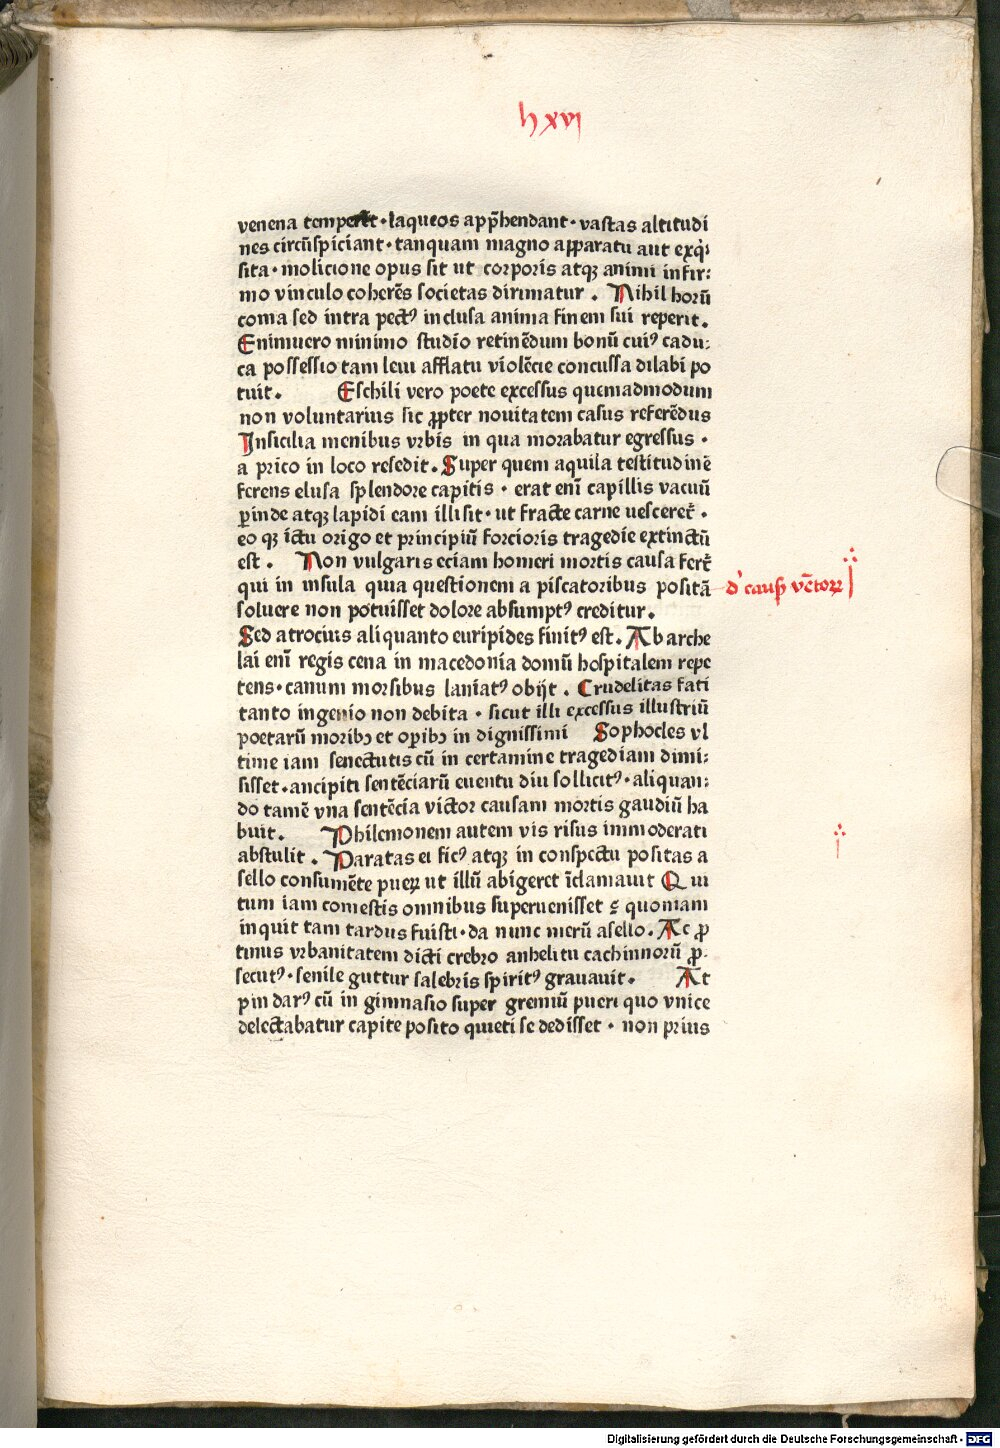 h xvi
venena temperēt · laqueos app̄hendant · vastas altitudi
nes circūspiciant · tanquam magno apparatu aut exq̇i
sita · molicione opus sit ut corporis atqꝫ animi infir:
mo vinculo coherēs societas dirimatur . Nihil horū
coma sed intra pectꝰ inclusa anima finem sui reperit.
Enimuero minimo studio retinēdum bonū cuiꝰ cadu:
ca possessio tam leui afflatu violēcie concussa dilabi po
tuit . Eschili vero poete excessus quemadmodum
non voluntarius sic ꝓpter nouitatem casus referēdus
Insicilia menibus vrbis in qua morabatur egressus .
a prico in loco resedit . Super quem aquila testitudinē
ferens elusa splendore capitis · erat enī capillis vacuū
ꝑinde atqꝫ lapidi eam illisit · ut fracte carne uescereł .
eo qꝫ ictu origo et principiū forcioris tragedie extinctū
est . Non vulgaris eciam homeri mortis causa ferł
qui in insula quia questionem a piscatoribus positā
d' caus̄ vētoꝝ
soluere non potuisset dolore absumptꝰ creditur .
Sed atrocius aliquanto euripides finitꝰ est . Ab arche
lai enī regis cena in macedonia domū hospitalem repe
tens · canum morsibus laniatꝰ obijt . Crudelitas fati
tanto ingenio non debita · sicut illi excessus illustriū
poetarū moribꝫ et oꝑibꝫ in dignissimi Sophocles vl
time iam senectutis cū in certamine tragediam dimi:
sisset · ancipiti sentēciarū euentu diu sollicitꝰ · aliquan:
do tamē vna sentēcia victor causam mortis gaudiū ha
buit . Philemonem autem vis risus immoderati
abstulit . Paratas ei ficꝰ atqꝫ in conspectu positas a
sello consumēte pueꝝ ut illū abigeret īclamauit Qui
tum iam comestis omnibus superuenisset ꝫ quoniam
inquit tam tardus fuisti · da nunc merū asello . Ac ꝓ
tinus vrbanitatem dicti crebro anhelitu cachinnorū ꝓ
secutꝰ · senile guttur salebris spiritꝰ grauauit . At
pindarꝰ cū in gimnasio super gremiū pueri quo vnice
delectabatur capite posito quieti se dedisset · non prius
Digitalisierung gefördert durch die Deutsche Forschungsgemeinschaft - DFG